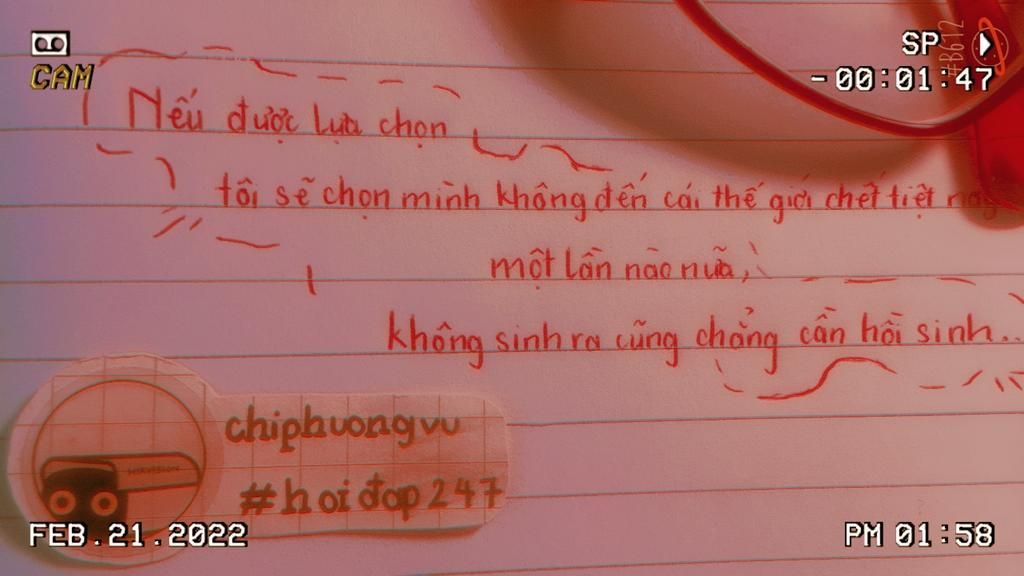 CAM
SP
-00:01:47
#B612
Nếu được lựa chọn
tôi sẽ chọn mình không đến cái thế giới chết tiệt này
một lần nào nữa,
không sinh ra cũng chẳng cần hồi sinh...
chiphuongvu
#hoiđap247
FEB.21.2022
PM 01:58